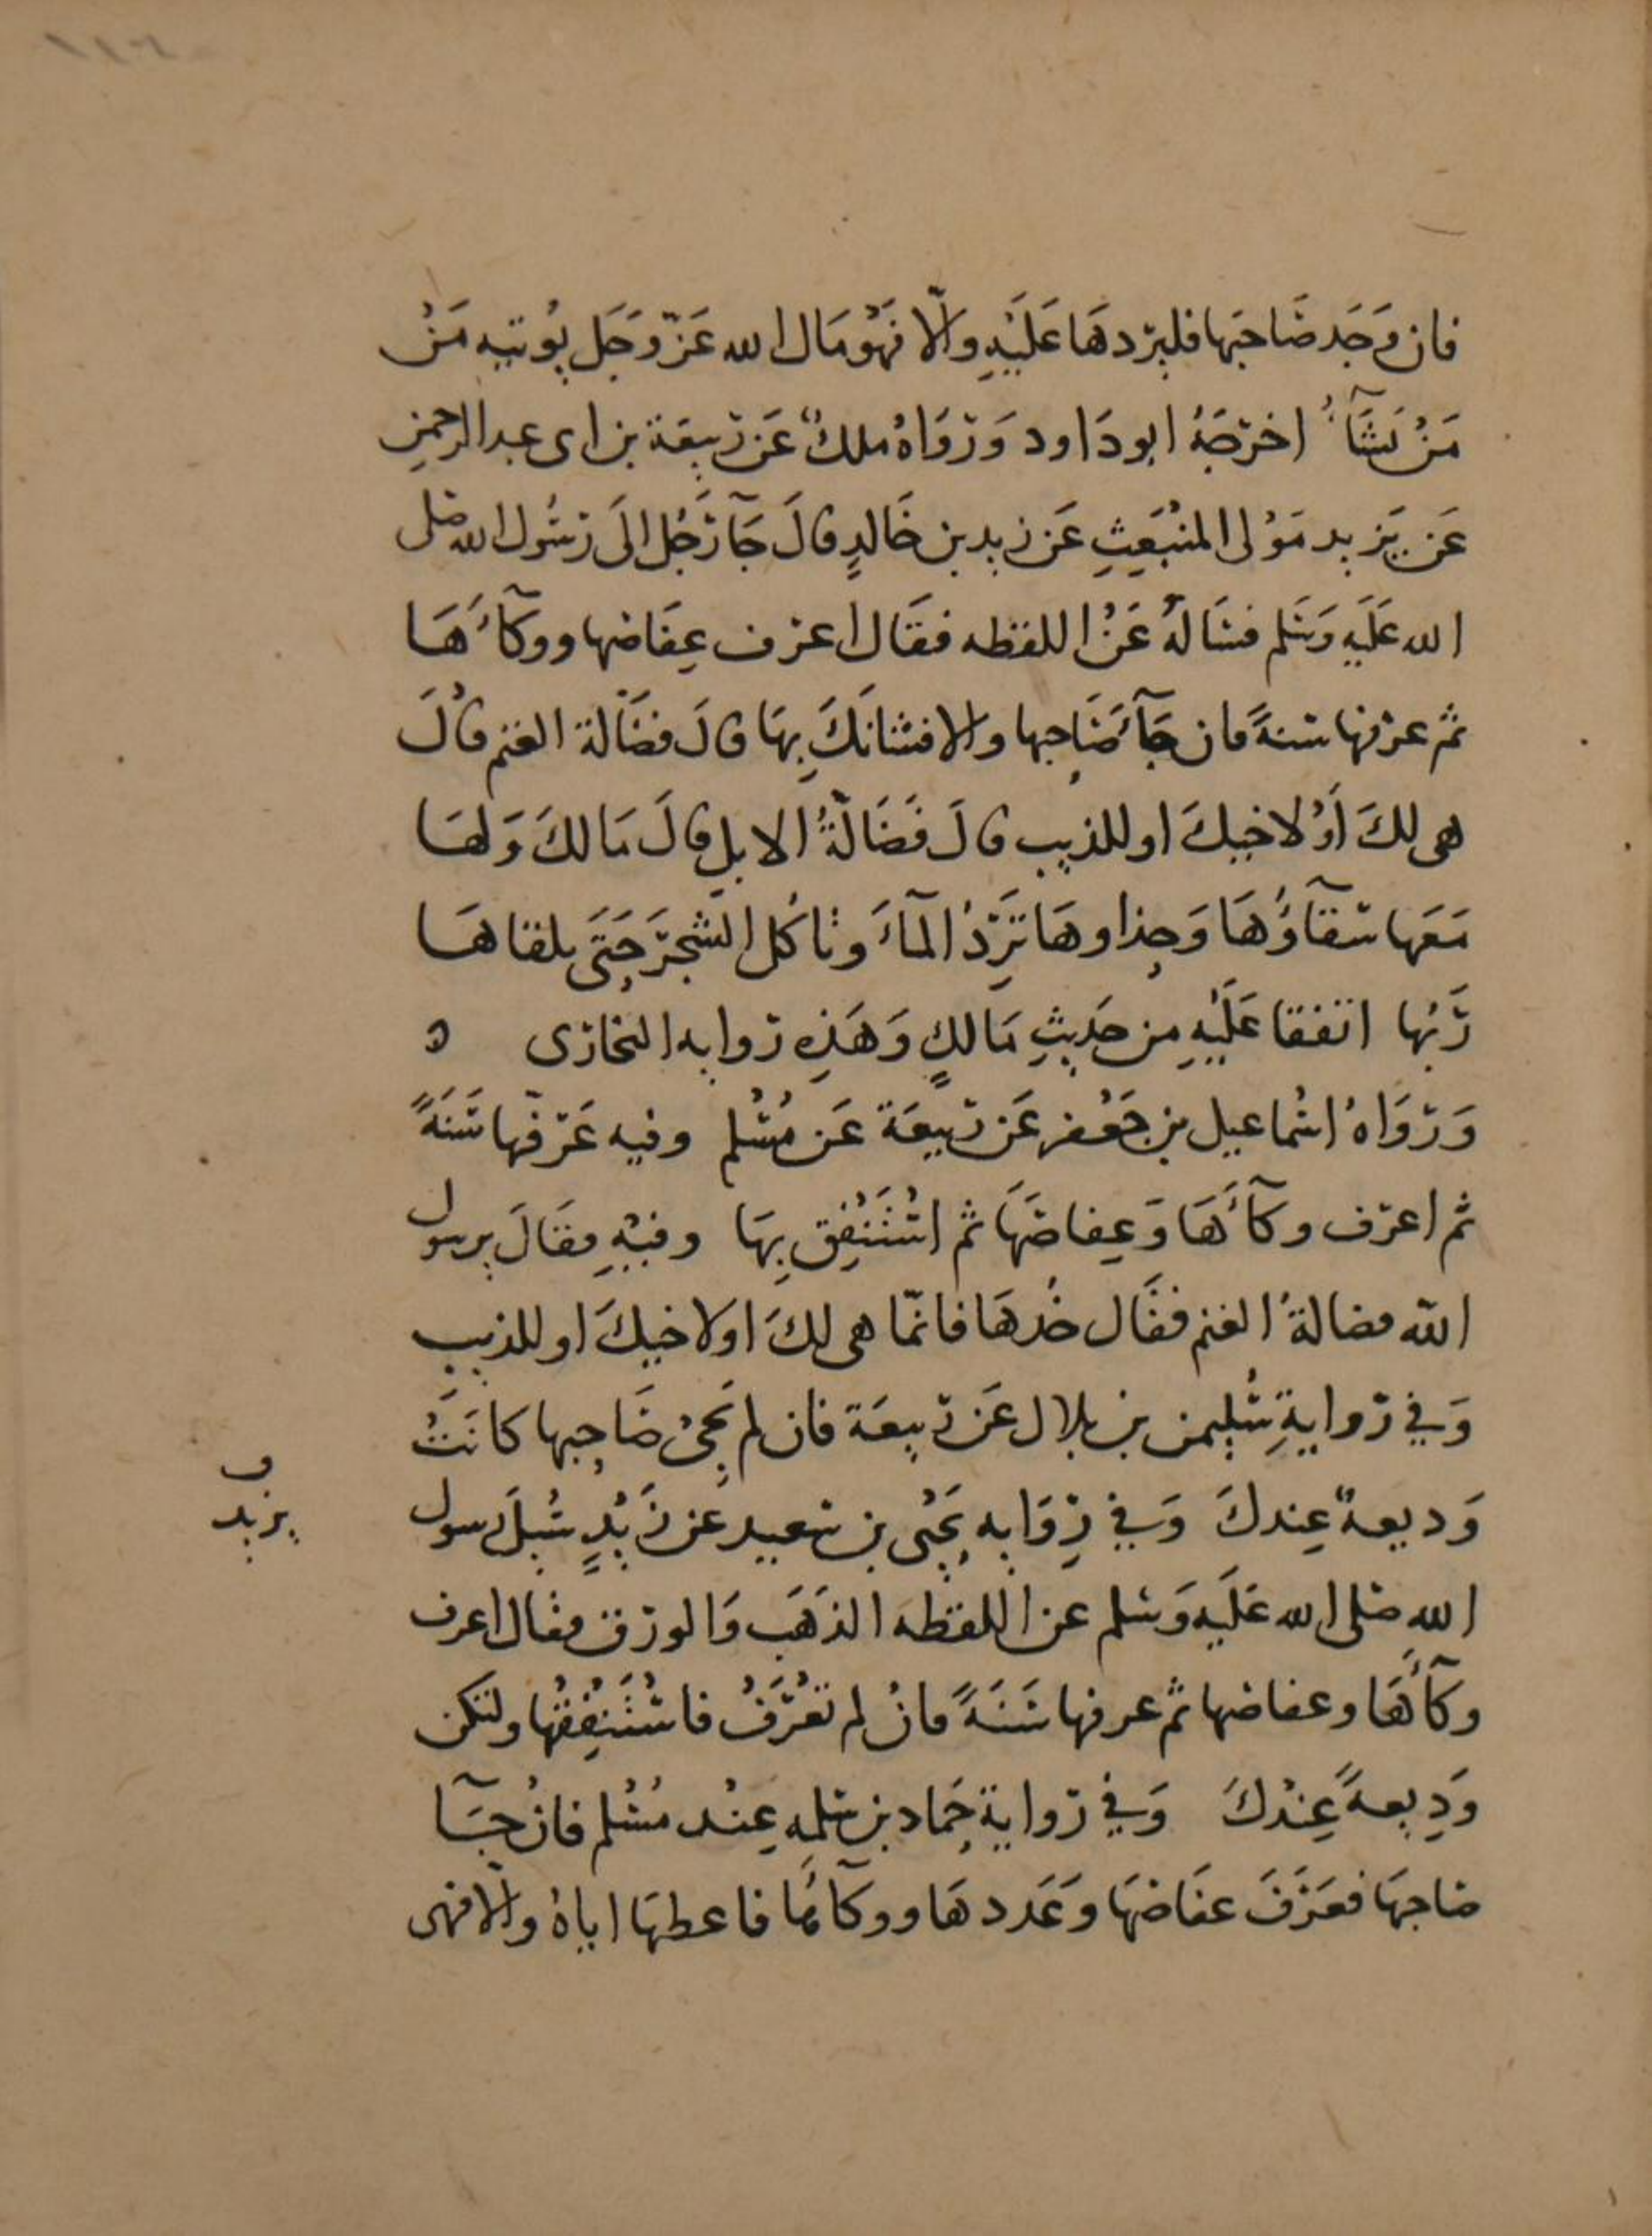 فان وَجَد صَاحبَها فليرّدهَا عَلَيْهِ والّا فهُو مَال الله عَزّ وَجَل يُوتيه مَنْ
مَنْ يَشَآُ اخرَجَهُ ابو دَاود وَرَوَاهُ ملكٌ عَن رَبِيعَة بن ابى عبد الرحمنِ
عَن يَزيد مَوْلى المنْبَعِثِ عَن زيد بن خَالدٍ قالَ جَآ رَجُل الىَ رَسُول الله صلى
الله عَلَيهِ وَسَلم فسَالهُ عَنْ اللقطه فقَال اعرف عِفَاصَها ووكآءَهَا
ثم عرفها سَنةً فان جَآءَ صَاحِبها والا فشانَكَ بِهَا قالَ فضَالة الغنم قالَ
هى لكَ أوْ لاخيكَ او للذيب قالَ فَضَالّةُ الابلِ قالَ مَا لكَ وَلهَا
مَعَها سقآوُهَا وَحِذاوهَا تَرِدُ المآءَ وتاكُل الشجَرَ حَتىَ يلقاهَا
رَبُّها اتفقا عَلَيْهِ من حَديثِ مَالكٍ وَهَذِه روايه البخارى ه
وَرَوَاهُ اسْماعيل بن جَعْفر عَن رَبيعَة عَن مُسْلم وفيه عَرّفْها سَنَةً
ثم اعرف وكآءَهَا وَعِفاصَهَا ثم اسْتَنْفِق بِهَا وفيْهِ فقَالَ يرسول
الله فضالةُ الغنم فقَال خُذهَا فانمّا هى لكَ او لاخيكَ او للذيب
وَفي روايةِ سُليمن بن بلال عَن رَبيعَة فان لم يَجئْ صَاحِبها كانَتْ
وَديعةً عِندكَ وَفي رِوَايه يَحْيى بن سَعيد عَن زَيْدٍ سُئِلَ رسول
ف
يزيد
اللهِ صلى الله عَلَيهِ وَسَلم عن اللقطه الذَهَب وَالورق فقال اعرف
وكآءَهَا وعفاصها ثم عرفها سَنَةً فانْ لم تعْرَفْ فاسْتَنْفِقْها ولتكن
وَدِيعةً عِنْدكَ وَفي روايةِ حَماد بن سَلمه عِنْد مُسْلم فانْ جَآ
صَاحبهَا فعَرَفَ عفَاصَهَا وَعَددهَا ووكآءَها فاعطهَا اياهُ والّا فهى